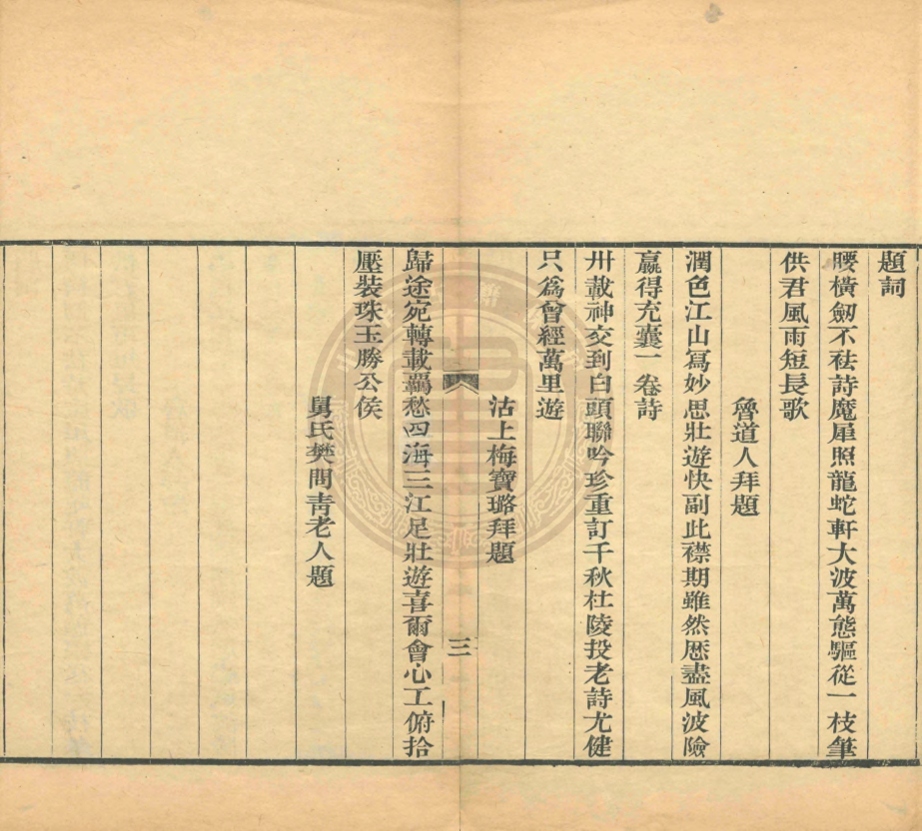 題詞
腰橫劒不袪詩魔犀照龍蛇軒大波萬態驅從一枝筆
供君風雨短長歌
魯道人拜題
潤色江山寫妙思壯遊快副此襟期雖然歴盡風波險
贏得充囊一卷詩
卅載神交到白頭聯吟珍重訂千秋杜陵投老詩尤健
只爲曾經萬里遊
沽上梅寶璐拜題
三
歸途宛轉載羈愁四海三江足壯遊喜爾會心工俯拾
壓裝珠玉勝公侯
舅氏樊問青老人題